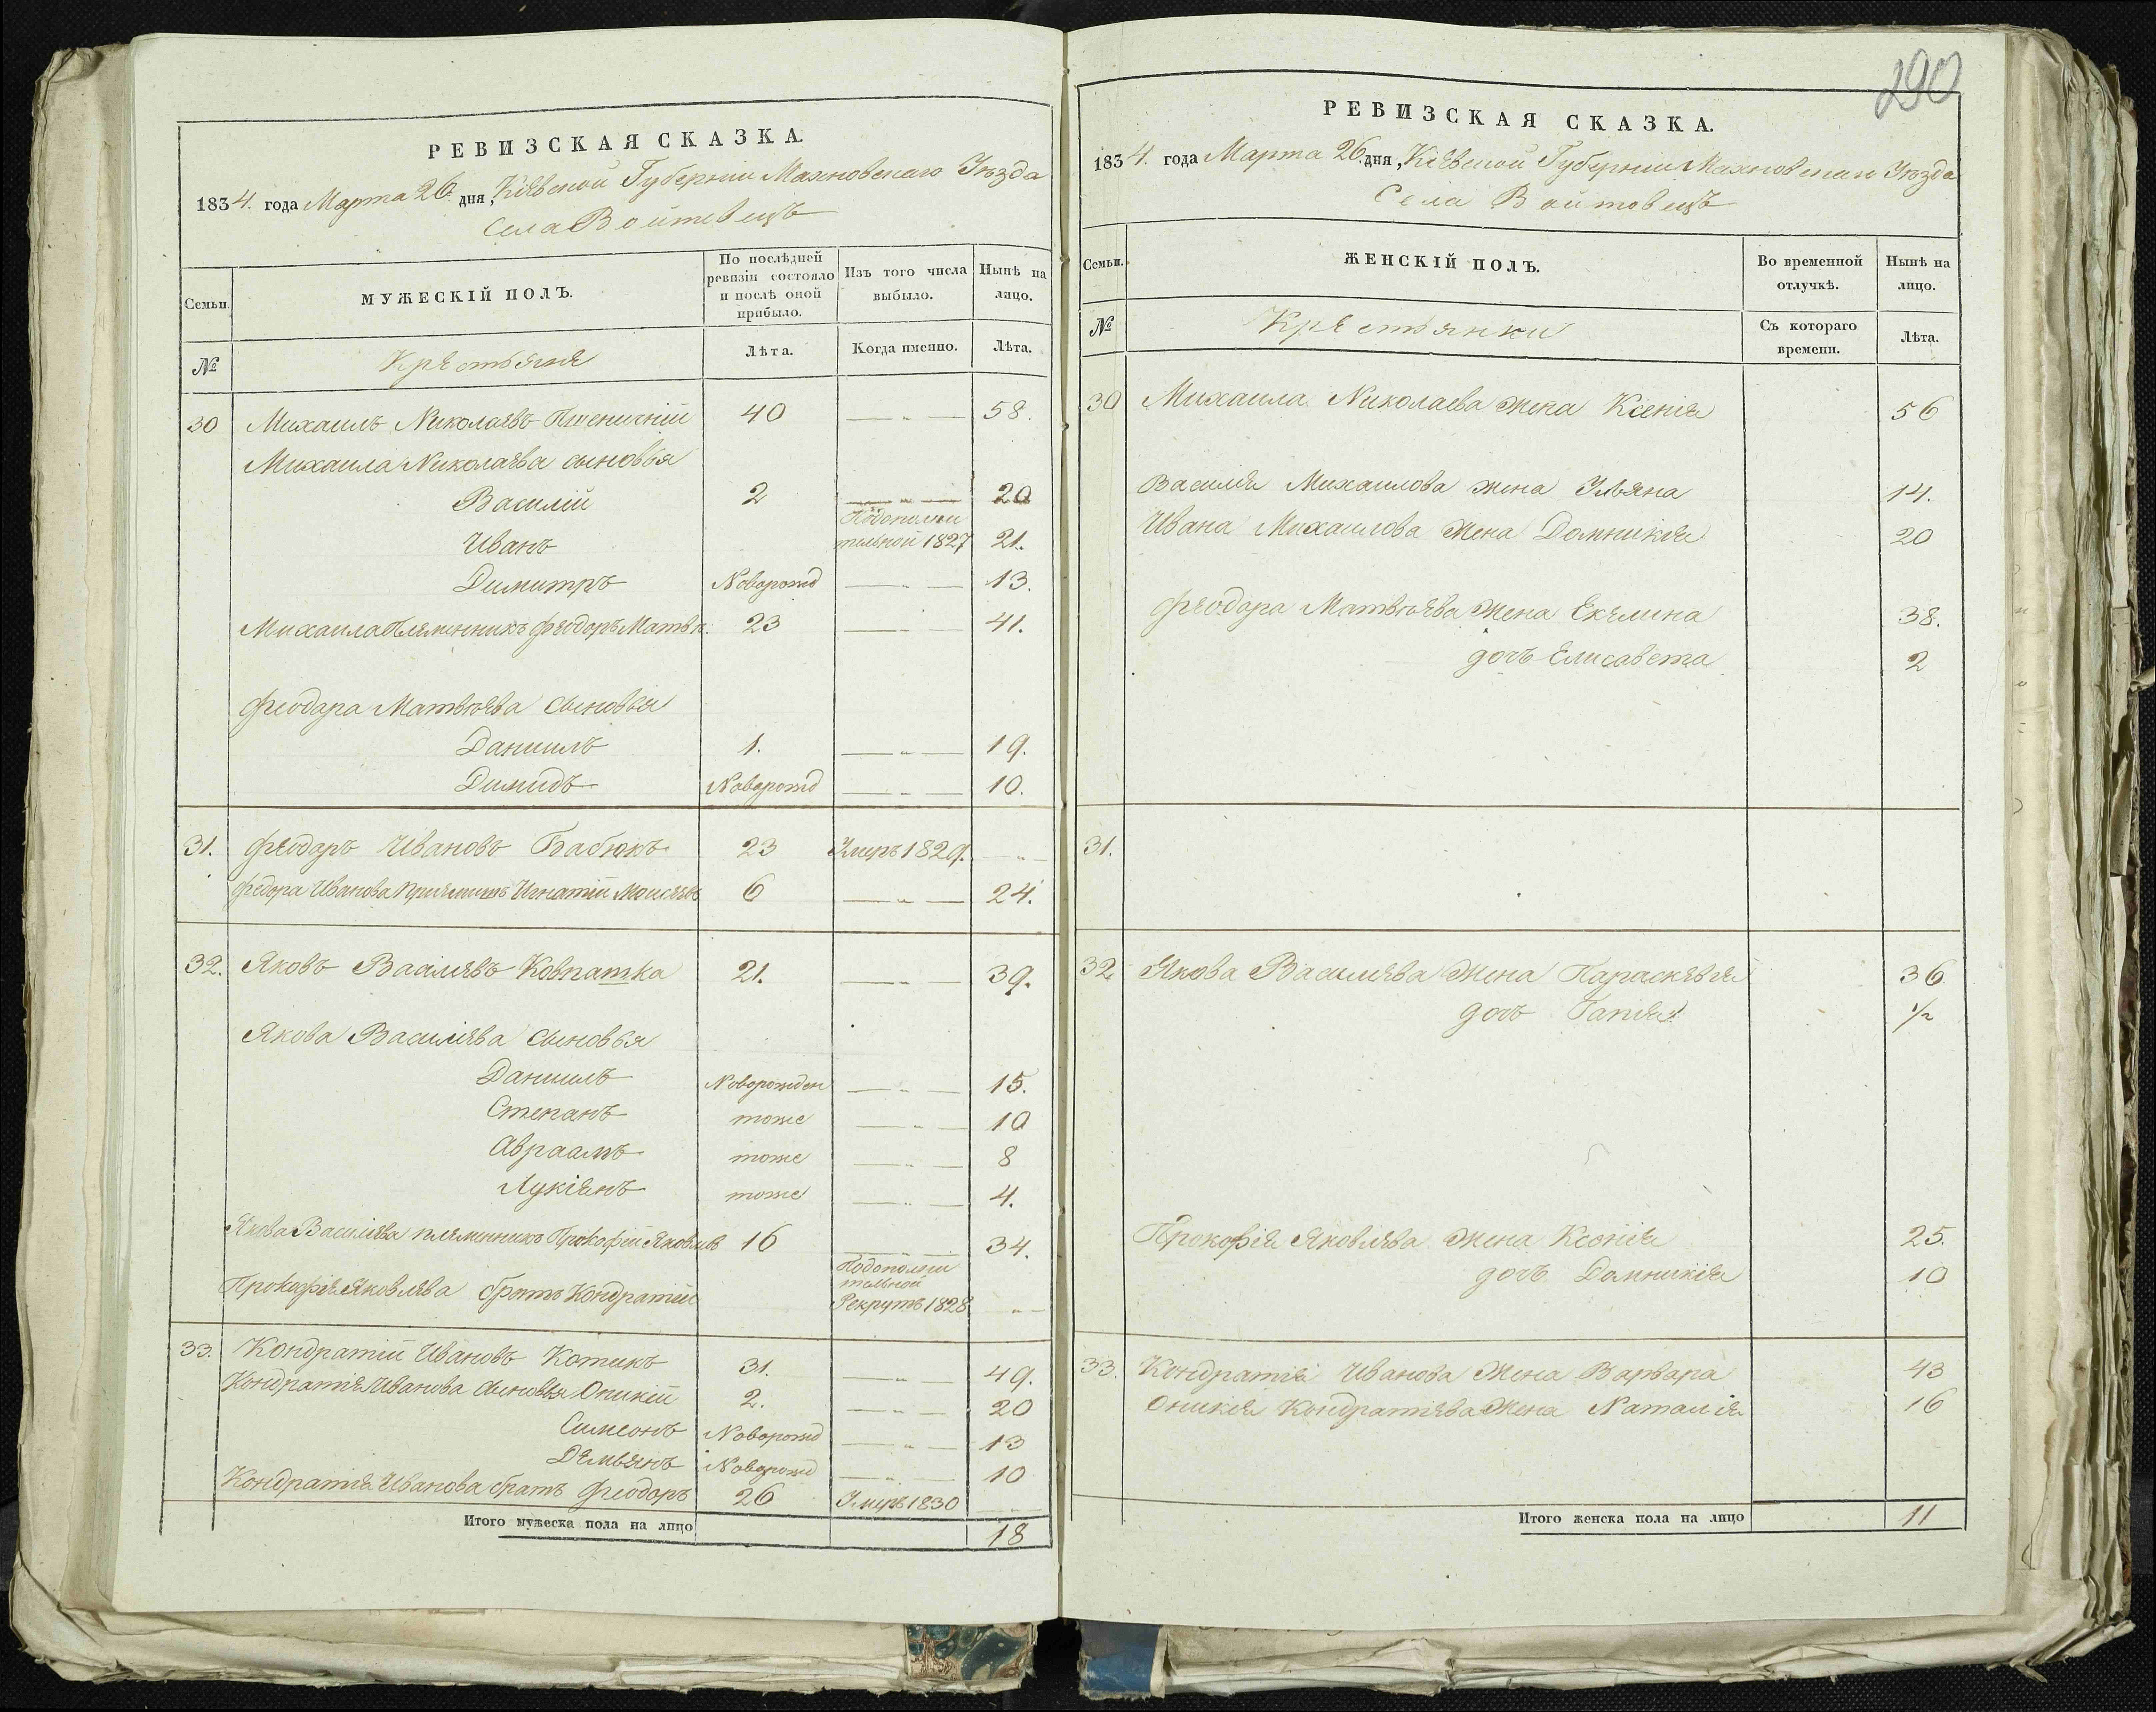 290
РЕВИЗСКАЯ СКАЗКА.
1834. года Марта 26. дня, Кіевской Губерніи Махновскаго Уѣзда
Села Войтовецъ
Семьи. МУЖЕСКІЙ ПОЛЪ. По послѣдней ревизіи состояло и послѣ оной прибыло. Изъ того числа выбыло. Нынѣ на лицо.
№ Крестьяне Лѣта. Когда именно. Лѣта.
30 Михаилъ Николаевъ Пшеничній 40 — „ — 58.
Михаила Николаева сыновья
Василій 2 — „ — 20
Иванъ Подополни тельной 1827 21.
Димитръ Новорожд — „ — 13.
Михаила Племенникъ Феодоръ Матвѣ. 23 — „ — 41.
Феодора Матвѣева Сыновья
Даниилъ 1. — „ — 19.
Димидъ Новорожд — „ — 10.
31. Феодоръ Ивановъ Бабюкъ 23 Умеръ 1829. — „ —
Федора Иванова Приемишъ Игнатій Моисеевъ 6 — „ — 24.
32. Яковъ Васильевъ Ковпатка 21. — „ — 39.
Якова Василіева Сыновья
Даниилъ Новорожден — „ — 15.
Степанъ тоже — „ — 10
Авраамъ тоже — „ — 8
Лукіянъ тоже — „ — 4.
Якова Василіева племенникъ Прокофій Яковлевъ 16 — „ — 34.
Прокофія Яковлева братъ Кондратій Подополни тельной Рекрутъ 1828 — „ —
33. Кондратій Ивановъ Котикъ 31. — „ — 49.
Кондратія Иванова Сыновья Оникій 2. — „ — 20
Симеонъ Новорожд — „ — 13
Демьянъ Новорожд — „ — 10
Кондратія Иванова братъ Феодоръ 26 Умеръ 1830
Итого мужеска пола на лицо 18
РЕВИЗСКАЯ СКАЗКА.
1834. года Марта 26. дня, Кіевской Губерніи Махновскаго Уѣзда
Села Войтовецъ
Семьи. ЖЕНСКІЙ ПОЛЪ. Во временной отлучкѣ. Нынѣ на лицо.
№ Крестьянки Съ котораго времени. Лѣта.
30 Михаила Николаева жена Ксенія 56
Василія Михаилова жена Ульяна 14.
Ивана Михаилова жена Домникія 20
Феодора Матвѣева жена Екелина 38.
дочь Елисавета 2
31.
32 Якова Василиева жена Параскевія 36
дочь Гапія 1/2
Прокофія Яковлева жена Ксенія 25.
дочь Домникія 10
33. Кондратія Иванова жена Варвара 43
Оникія Кондратіева жена Наталія 16
Итого женска пола на лицо 11